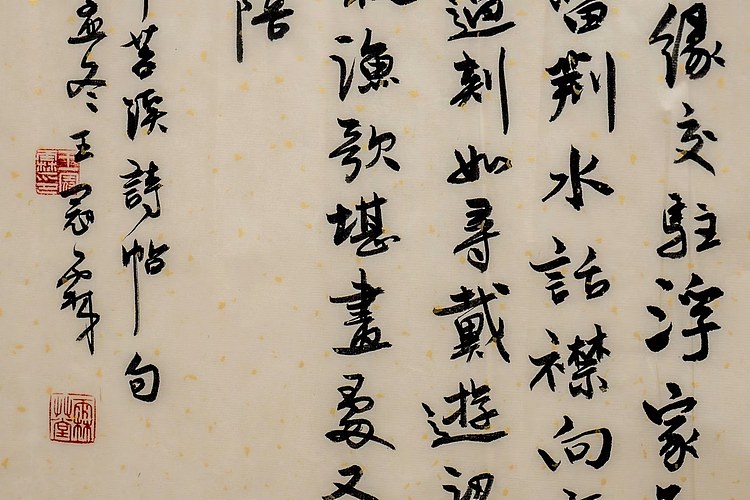 缘交駐浮家
留荆水話襟向
過剡如尋戴遊
漁歌堪畫處又
陪
苕溪詩帖句
孟冬王